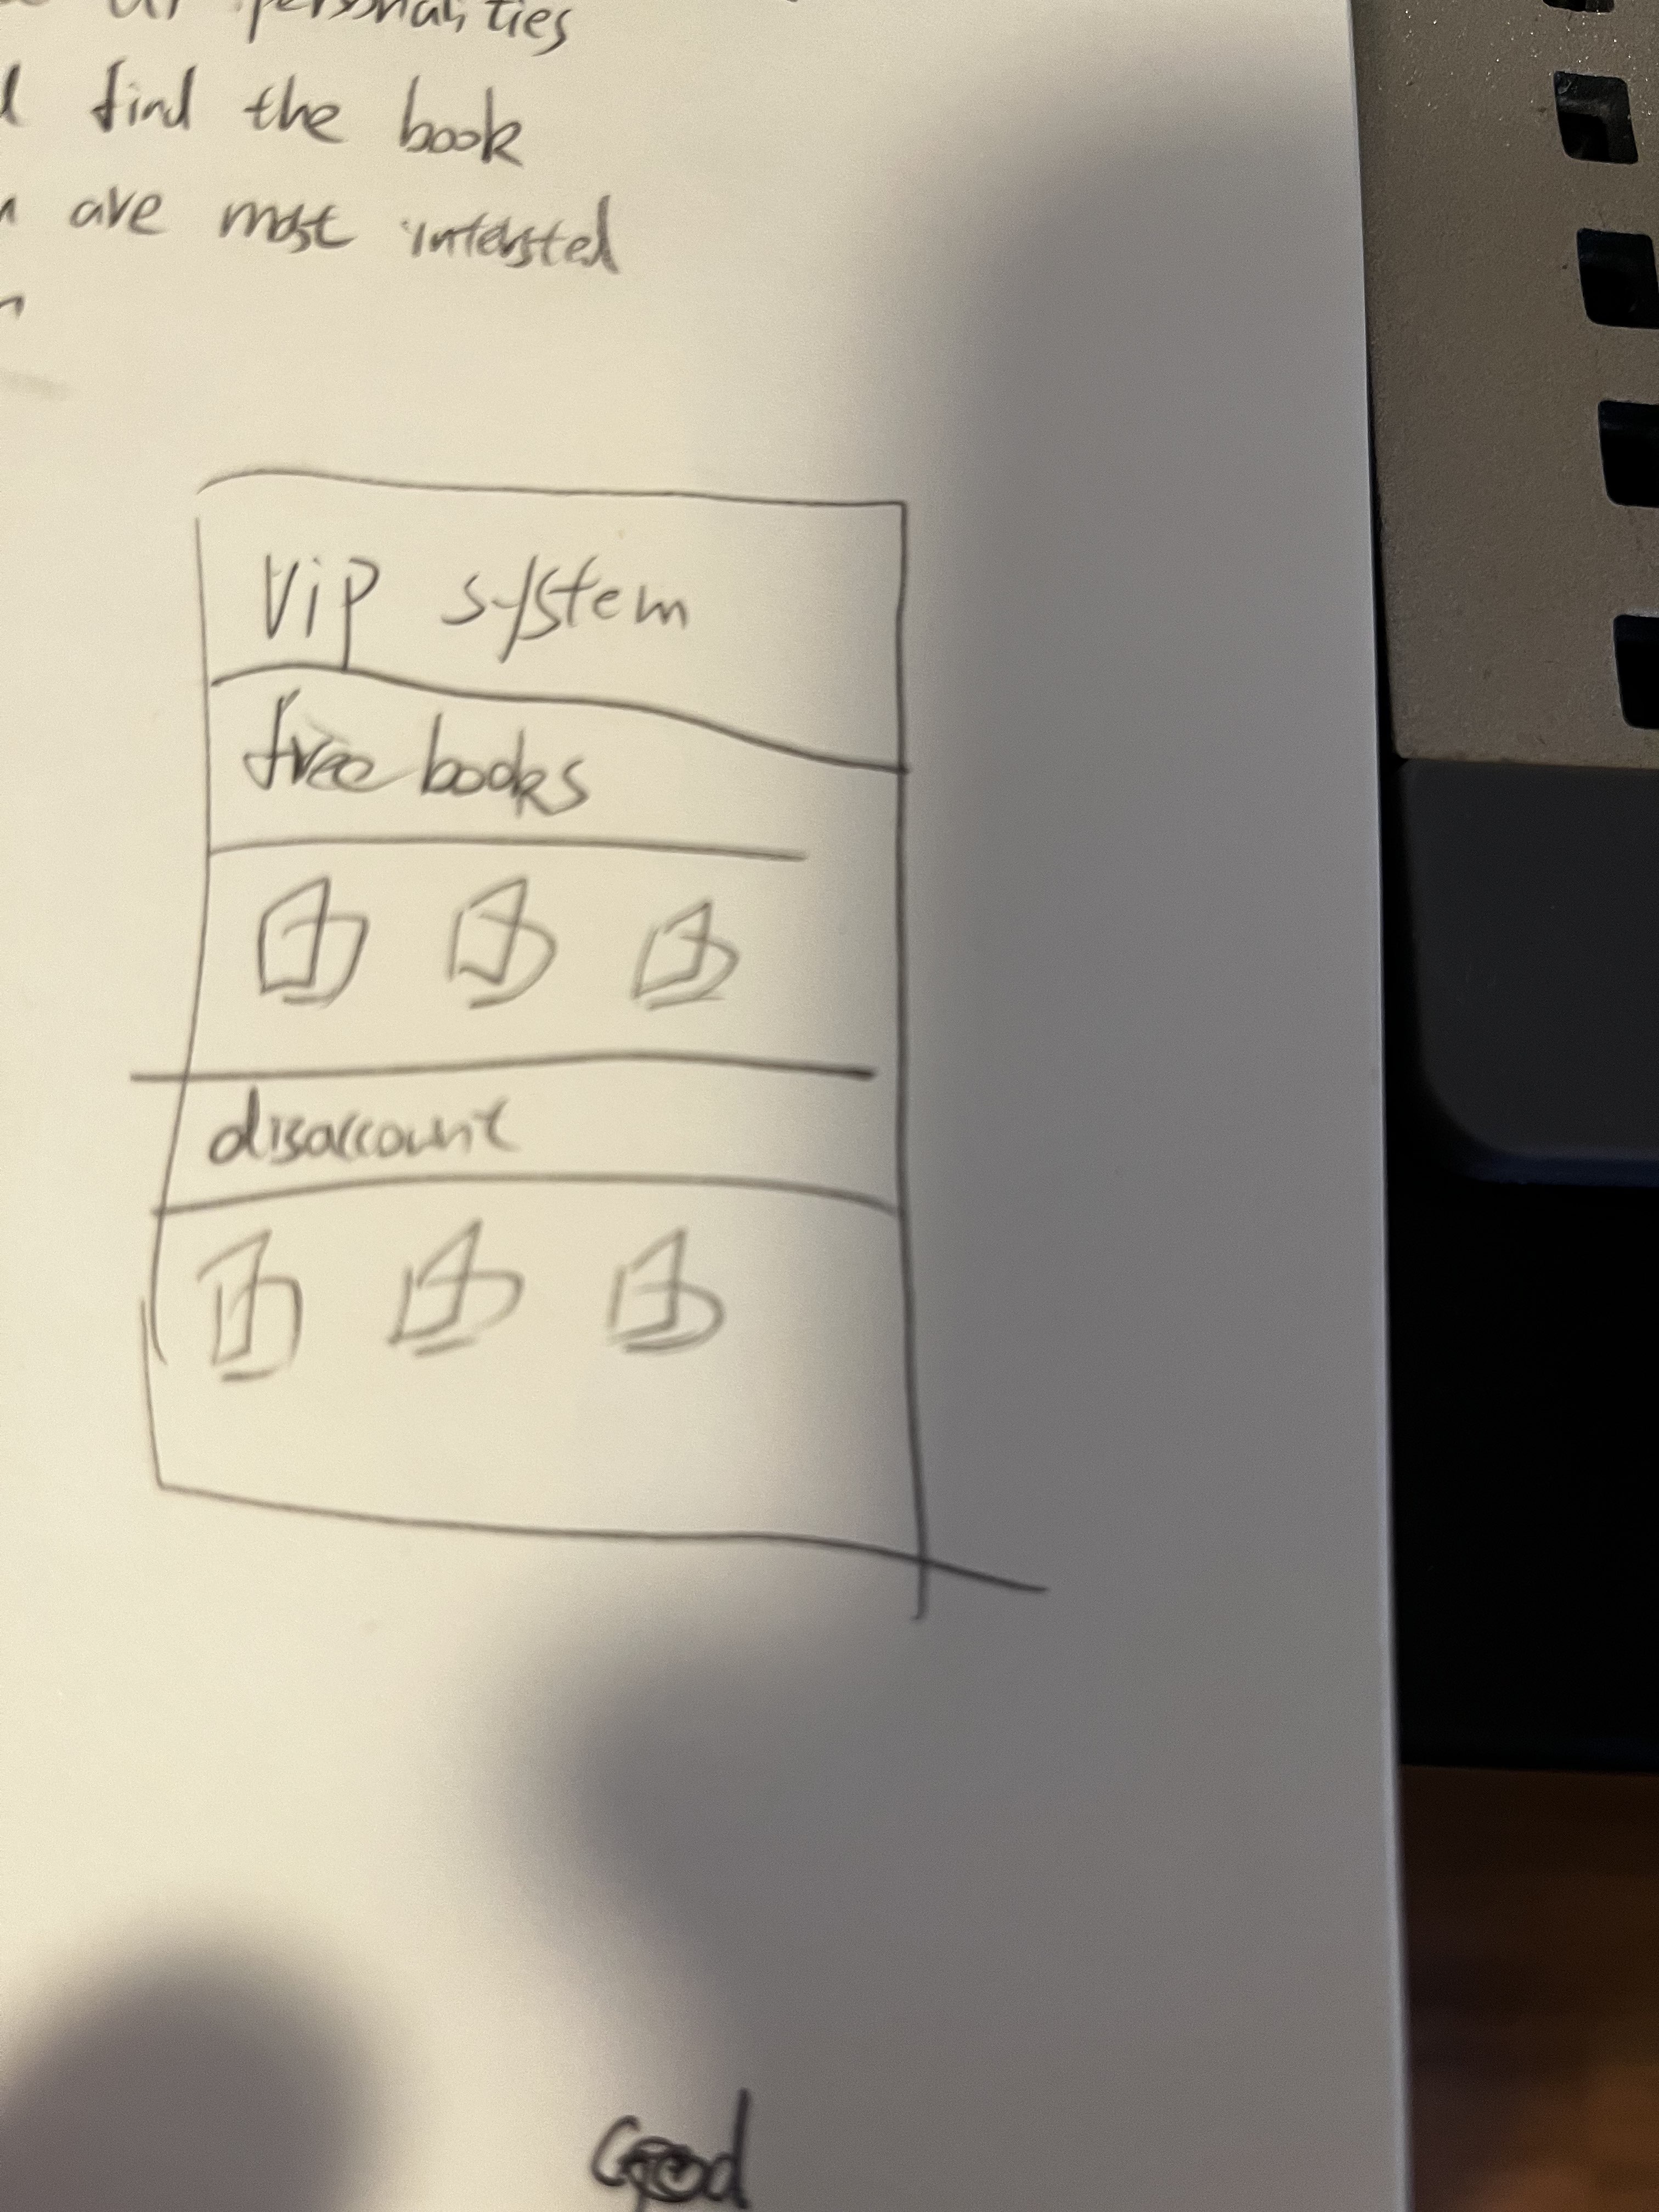 personalities
find the book
are most intersted
Vip system
free books
disaccount
Good